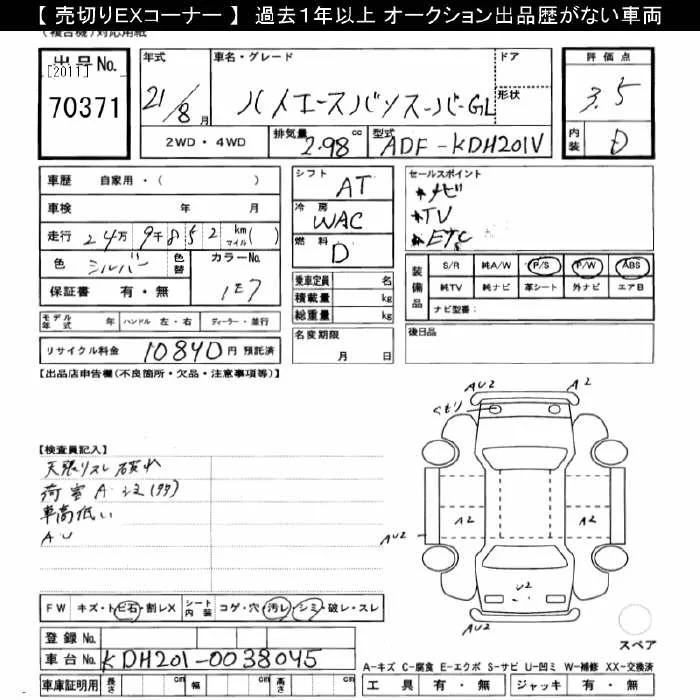 【 売切りEXコーナー 】 過去1年以上 オークション出品歴がない車両
(複合機)対応用紙
出品No.
[2011]
70371
年式 21/8月
車名・グレード ハイエースバンスーパーGL
ドア
形状
評価点 3.5
内装 D
2WD・4WD
排気量 2.98 cc
型式 ADF-KDH201V
車歴 自家用・( )
車検 年 月
走行 24万9千852 km(マイル)( )
色 シルバー
色替
カラーNo. 1E7
保証書 有・無
モデル年式 年 ハンドル 左・右 ディーラー・並行
リサイクル料金 10840円 預託済
シフト AT
冷房 WAC
燃料 D
乗車定員 名
積載量 kg
総重量 kg
名変期限
月 日
セールスポイント
ナビ
TV
ETC
装備品
S/R 純A/W P/S P/W ABS
純TV 純ナビ 革シート 外ナビ エアB
ナビ型番:
後日品
【出品店申告欄(不良箇所・欠品・注意事項等)】
【検査員記入】
天張リスレ 破れ
荷室 A シミ(タタ)
車高低い
AU
AU2 A2
くもり
A2 A2
AU2
U2
AU2
スペア
FW キズ・トビ石・割レX シート内装 コゲ・穴・汚レ・シミ・破レ・スレ
登録No.
車台No. KDH201-0038045
車庫証明用 長さ cm 幅 cm 高さ cm
A-キズ C-腐食 E-エクボ S-サビ U-凹ミ W-補修 XX-交換済
工具 有・無 ジャッキ 有・無